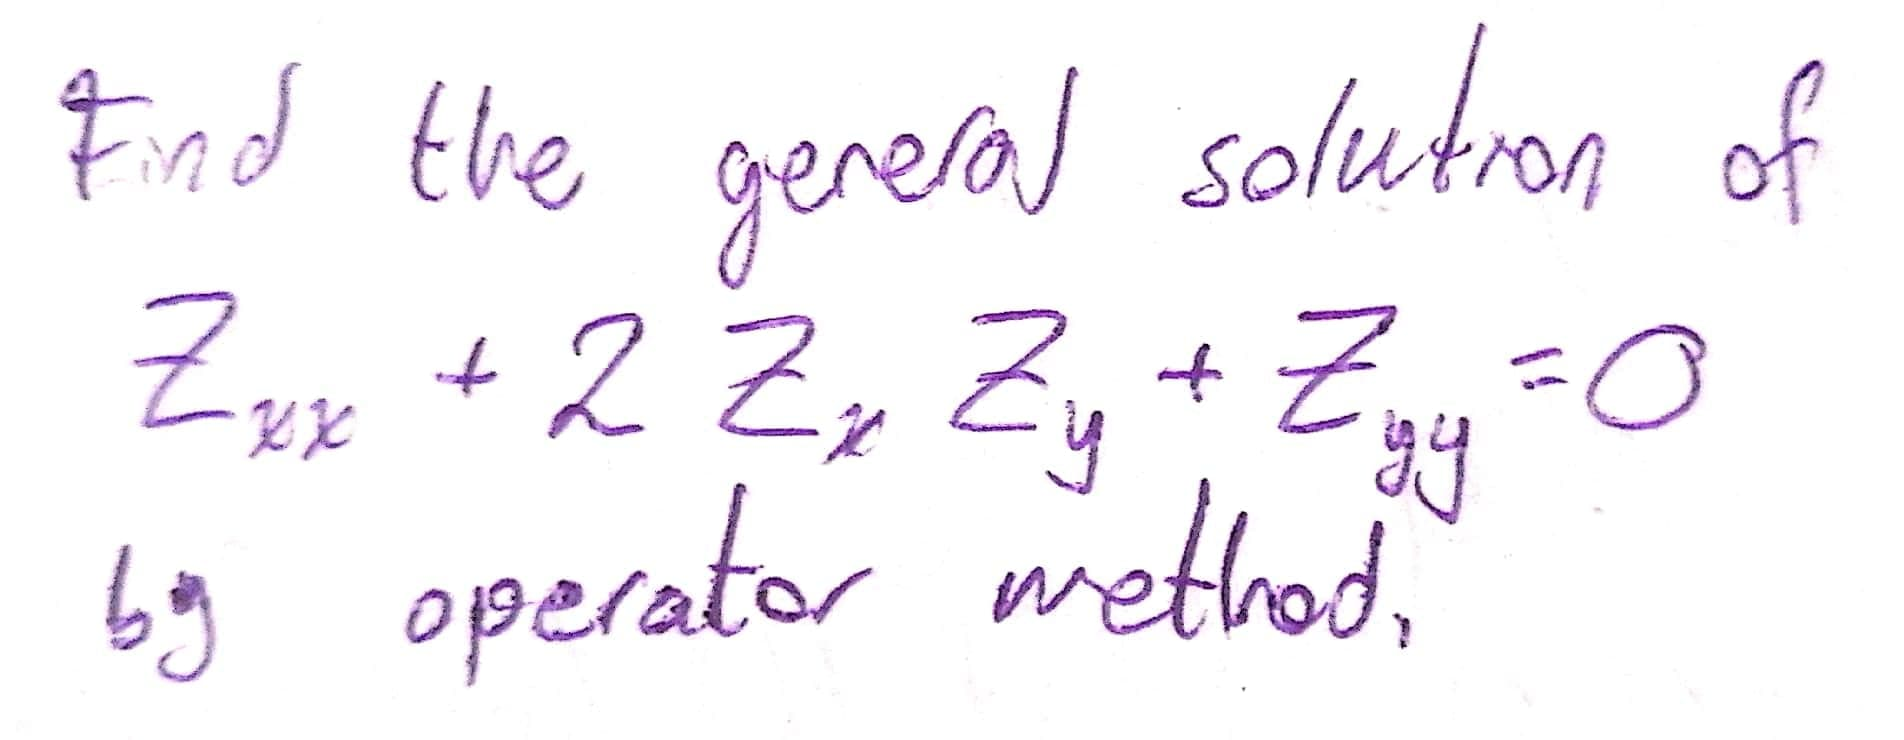 Find the general solution of
Zxx + 2 Zx Zy + Zyy = 0
by operator method.